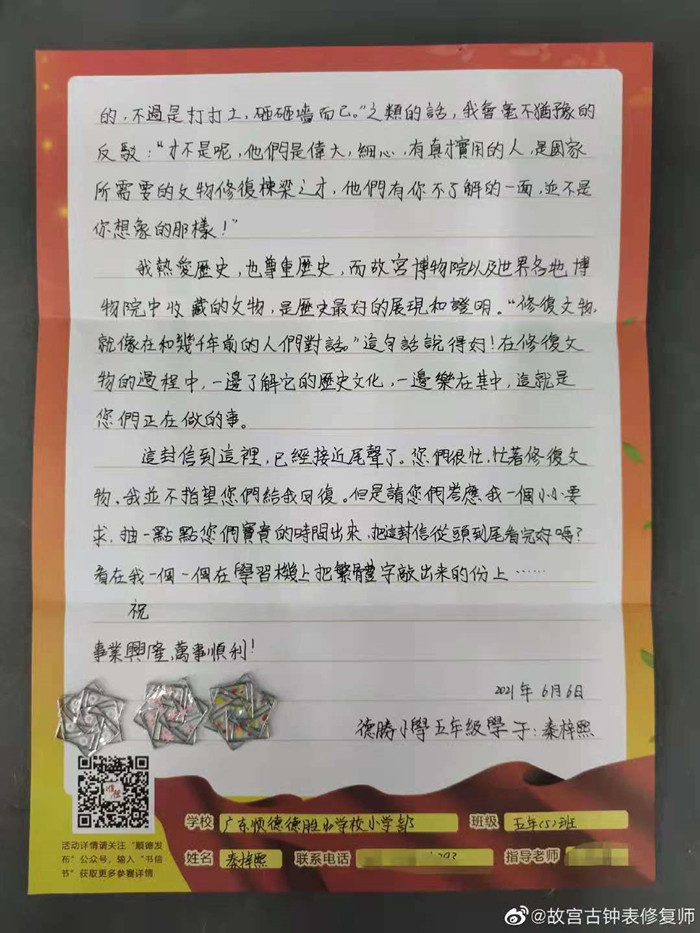 的，不過是打打土，砸砸墻而已。"之類的話，我會毫不猶豫的
反駁："才不是呢，他們是偉大，細心，有真才實用的人，是國家
所需要的文物修復棟梁之才，他們有你不了解的一面，並不是
你想象的那樣！"
我熱愛歷史，也尊重歷史，而故宮博物院以及世界各地博
物院中收藏的文物，是歷史最好的展現和證明。"修復文物，
就像在和幾千年前的人們對話。"這句話說得好！在修復文
物的過程中，一邊了解它的歷史文化，一邊樂在其中，這就是
您們正在做的事。
這封信到這裡，已經接近尾聲了。您們很忙，忙著修復文
物，我並不指望您們給我回復。但是請您們答應我一個小小要
求，抽一點點您們寶貴的時間出來，把這封信從頭到尾看完好嗎？
看在我一個一個在學習機上把繁體字敲出来的份上……
祝
事業興隆，萬事順利！
2021年6月6日
德勝小學五年級學子：秦梓熙
学校 广东顺德德胜学校小学部
班级 五年(5)班
姓名 秦梓熙 联系电话 指导老师
活动详情请关注"顺德发
布"公众号，输入"书信
节"获取更多参赛详情
@故宫古钟表修复师